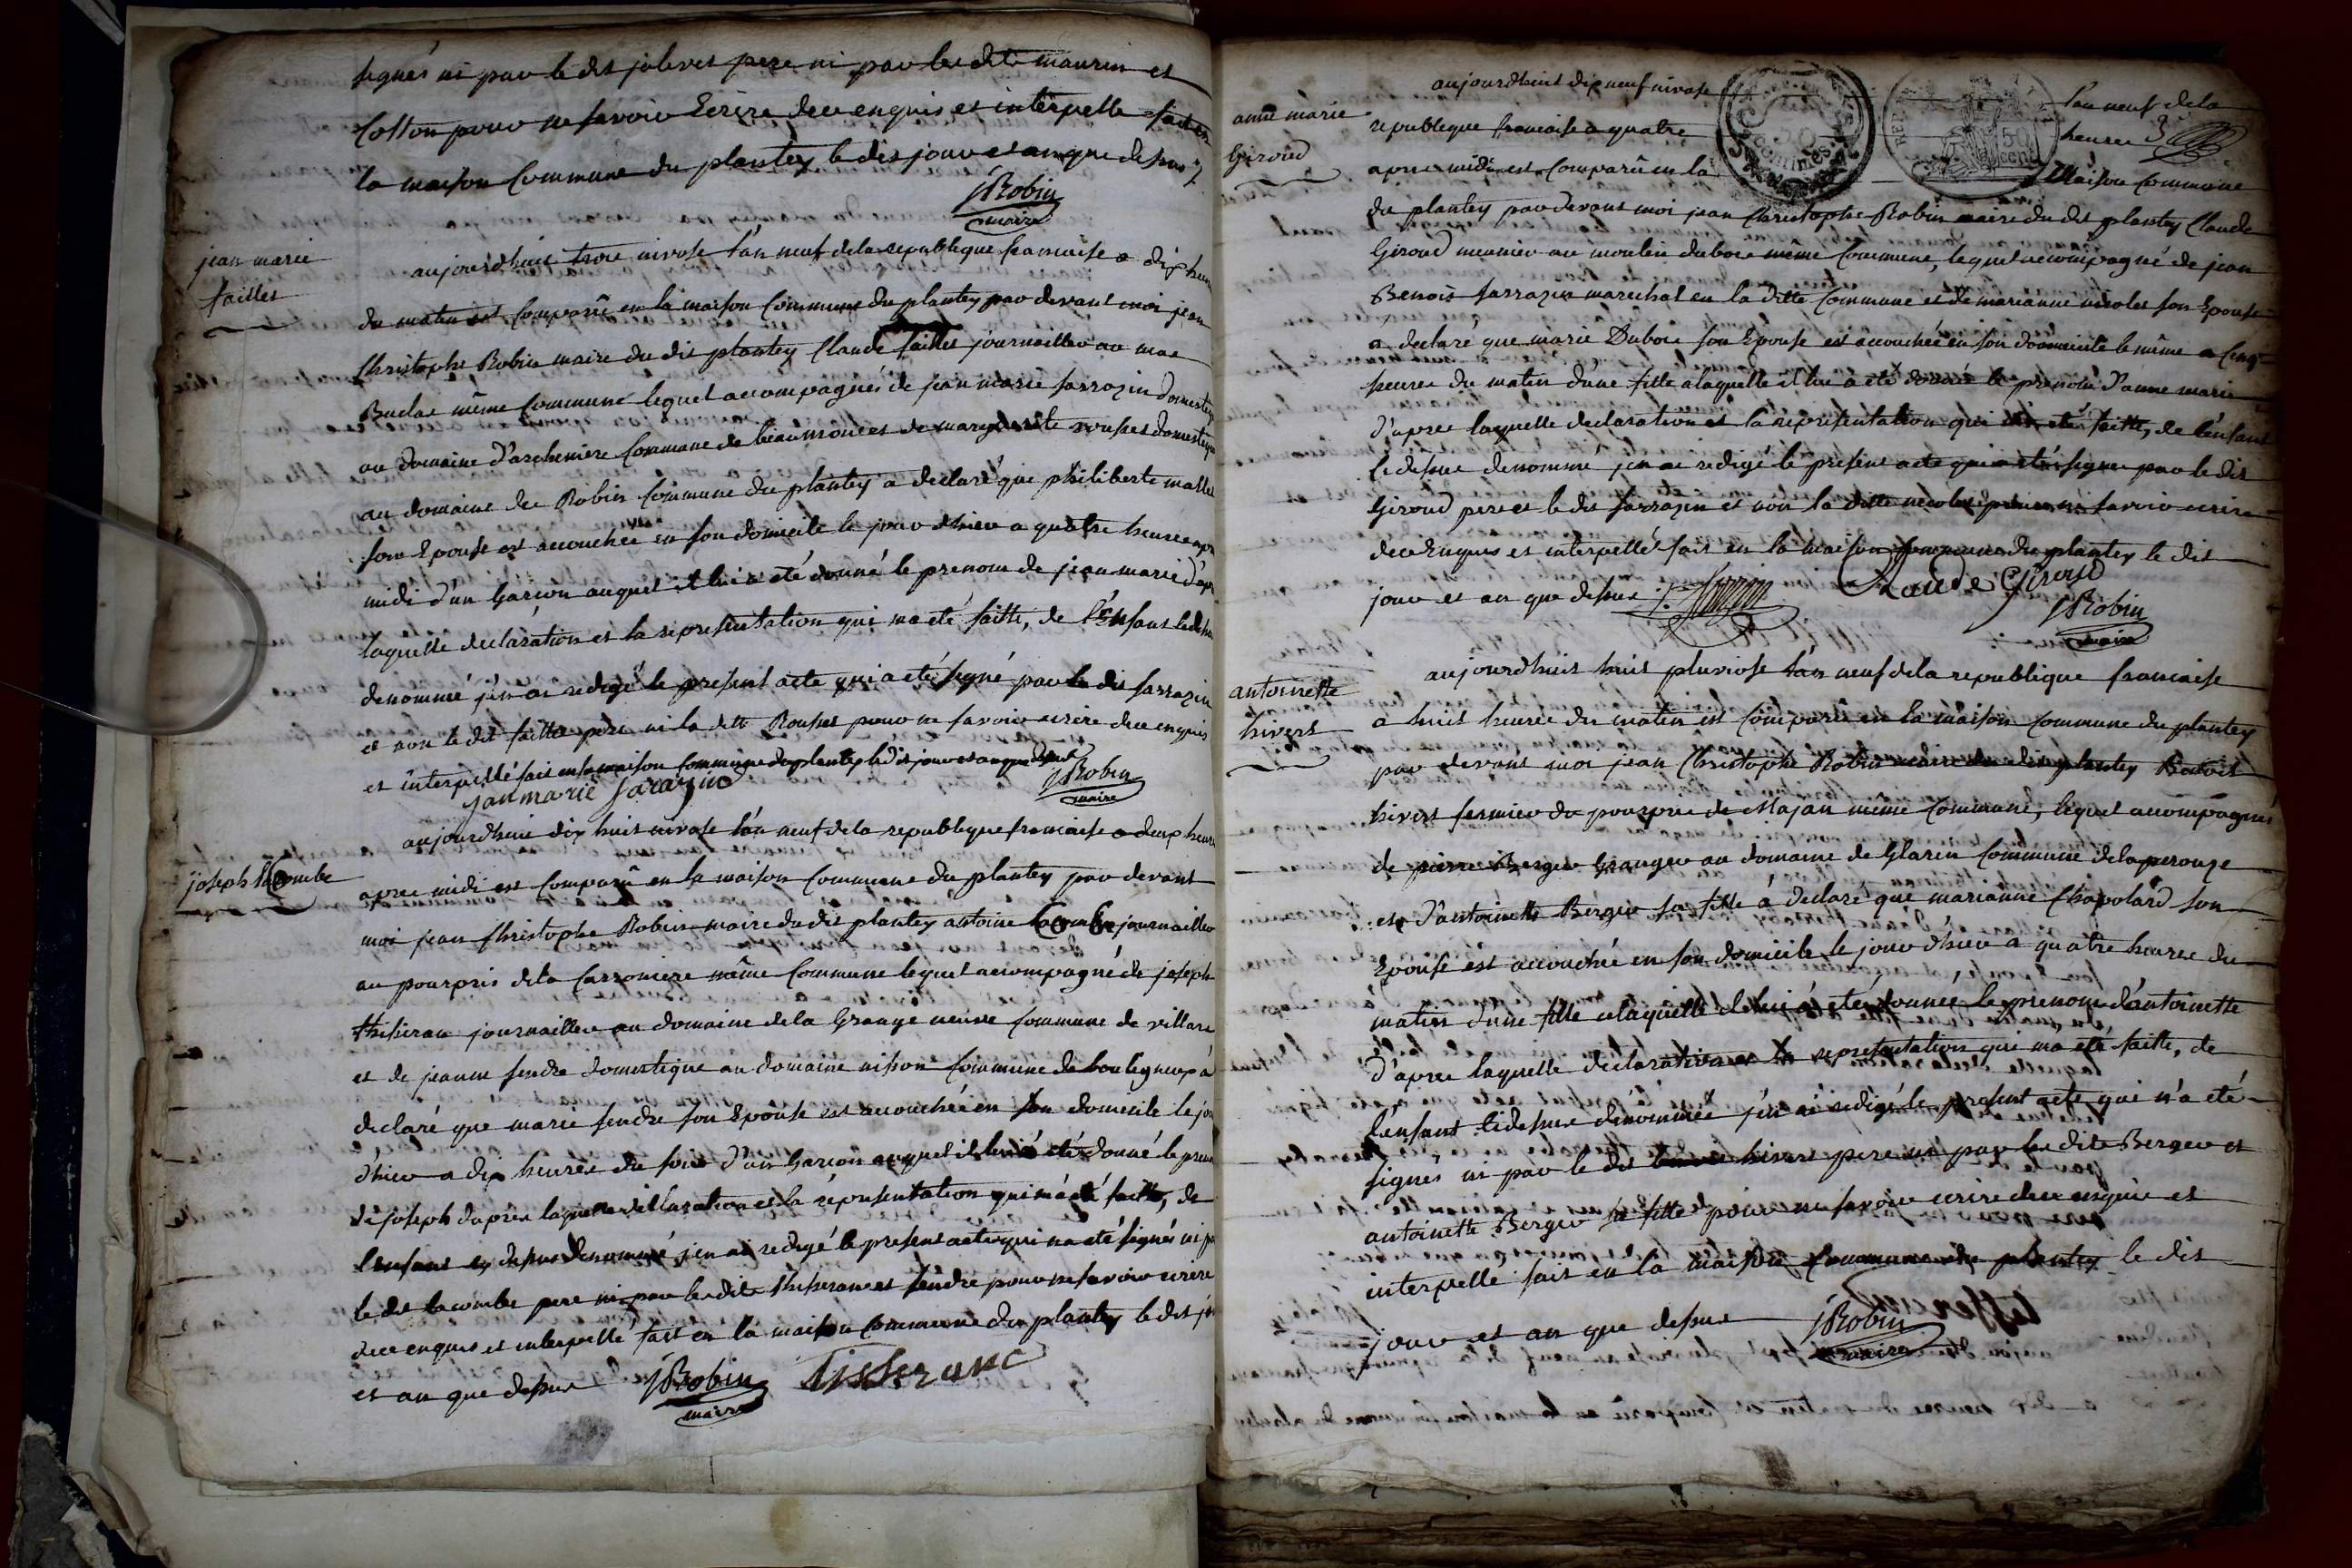 signés ni par le dit jolivet pere ni par les dits maurin et
Cotton pour ne savoir Ecrire dece enquis et interpellé fait en
la maison Commune du plantey le dit jour et an que dessus
JRobin
maire
jean marie
failles
aujourdhuit trois nivose l'an neuf dela republique francaise a dix heures
du matin est comparû en la maison Commune du plantey par devant moi jean
Christophe Robin maire du dit plantey Claude failles journaillier au mas
Buclas même Commune lequel accompagnés de jean marie sarrazin domestique
au domaine d'archeniere Commune de beaumont et de margueritte rousset domestique
au domaine des Robin Commune du plantey a declaré que philiberte mallet
son Epouse est accouchée en son domicile le jour dhier a quatre heures apres
midi d'un Garcon auquel il lui a eté donné le prenom de jean marie d'apres
laquelle declaration et la representation qui ma eté faitte, de l'Enfant cidessus
denommé j'en ai redigé le present acte qui a eté signé par le dit sarrazin
et non le dit failles pere ni la ditte Rousset pour ne savoir ecrire dece enquis
et interpellé fait en la maison Commune du plantey le dit jour et an que dessus
jan marie sarazin
JRobin
maire
joseph laCombe
aujourdhuit dix huit nivose l'an neuf dela republique francaise a deux heures
apres midi est Comparû en la maison Commune du plantey par devant
moi jean Christophe Robin maire du dit plantey antoine laCombe journaillier
au pourpris dela Carroniere même Commune lequel accompagné de joseph
thisseran journaillier au domaine dela Grange neuve Commune de villars
et de jeanne fendre domestique au domaine nison Commune de bouligneux a
declaré que marie fendre son Epouse est accouchée en son domicile le jour
d'hier a dix heures du soir d'un Garcon auquel il lui a eté donné le prenom
de joseph dapres laquelle declaration et la representation qui ma eté faitte, de
l'enfant cy dessus denommé j'en ai redigé le present acte qui na eté signés ni par
le dit lacombe pere ni par les dits thisseran et fendre pour ne savoir ecrire
dece enquis et interpellé fait en la maison Commune du plantey le dit jour
et an que dessus JRobin Tisseranc
maire
anne marie
Giroud
aujourdhuit dix neuf nivose l'an neuf dela
republique francaise a quatre heures
apres midi est Comparû en la Maison Commune
50
centimes
REP
50
cent
du plantey par devant moi jean Christophe Robin maire du dit plantey Claude
Giroud meunier au moulin dubois même Commune, lequel accompagné de jean
Benoit sarrazin marechal en la ditte Commune et de marianne nicolas son Epouse
a declaré que marie Dubois son Epouse est accouchée en son domicile le même a Cinq
heures du matin d'une fille alaquelle il lui a eté donnée le prenom d'anne marie
d'apres laquelle declaration et la representation qui ma eté faitte, de l'enfant
cidessus denommé j'en ai redigé le present acte qui a eté signé par le dit
Giroud pere et le dit sarrazin et non la ditte nicolas pour ne savoir ecrire
dece Enquis et interpellés fait en la maison Commune du plantey le dit
jour et an que dessus
Claude Giroud
JRobin
maire
antoinette
hivert
aujourdhuit huit pluviose l'an neuf dela republique francaise
a huit heures du matin est Comparû en la maison Commune du plantey
par devant moi jean Christophe Robin maire du dit plantey Benoit
hivert fermier du pourpris de Majan même Commune, lequel accompagnés
de pierre Berger Granger au domaine de Glaren Commune delaperouze
et d'antoinette Berger sa fille à declaré que marianne Chapolard son
Epouse est accouchée en son domicile le jour d'hier a quatre heures du
matin d'une fille alaquelle il lui a eté donnée le prenom d'antoinette
d'apres laquelle declaration et la representation qui ma eté faitte, de
l'enfant cidessus denommée j'en ai redigé le present acte qui n'a eté
signés ni par le dit hivert pere ni par les dits Berger et
antoinette Berger sa fille pour ne savoir ecrire dece enquis et
interpellé fait en la maison Commune du plantey le dit
jour et an que dessus JRobin
maire